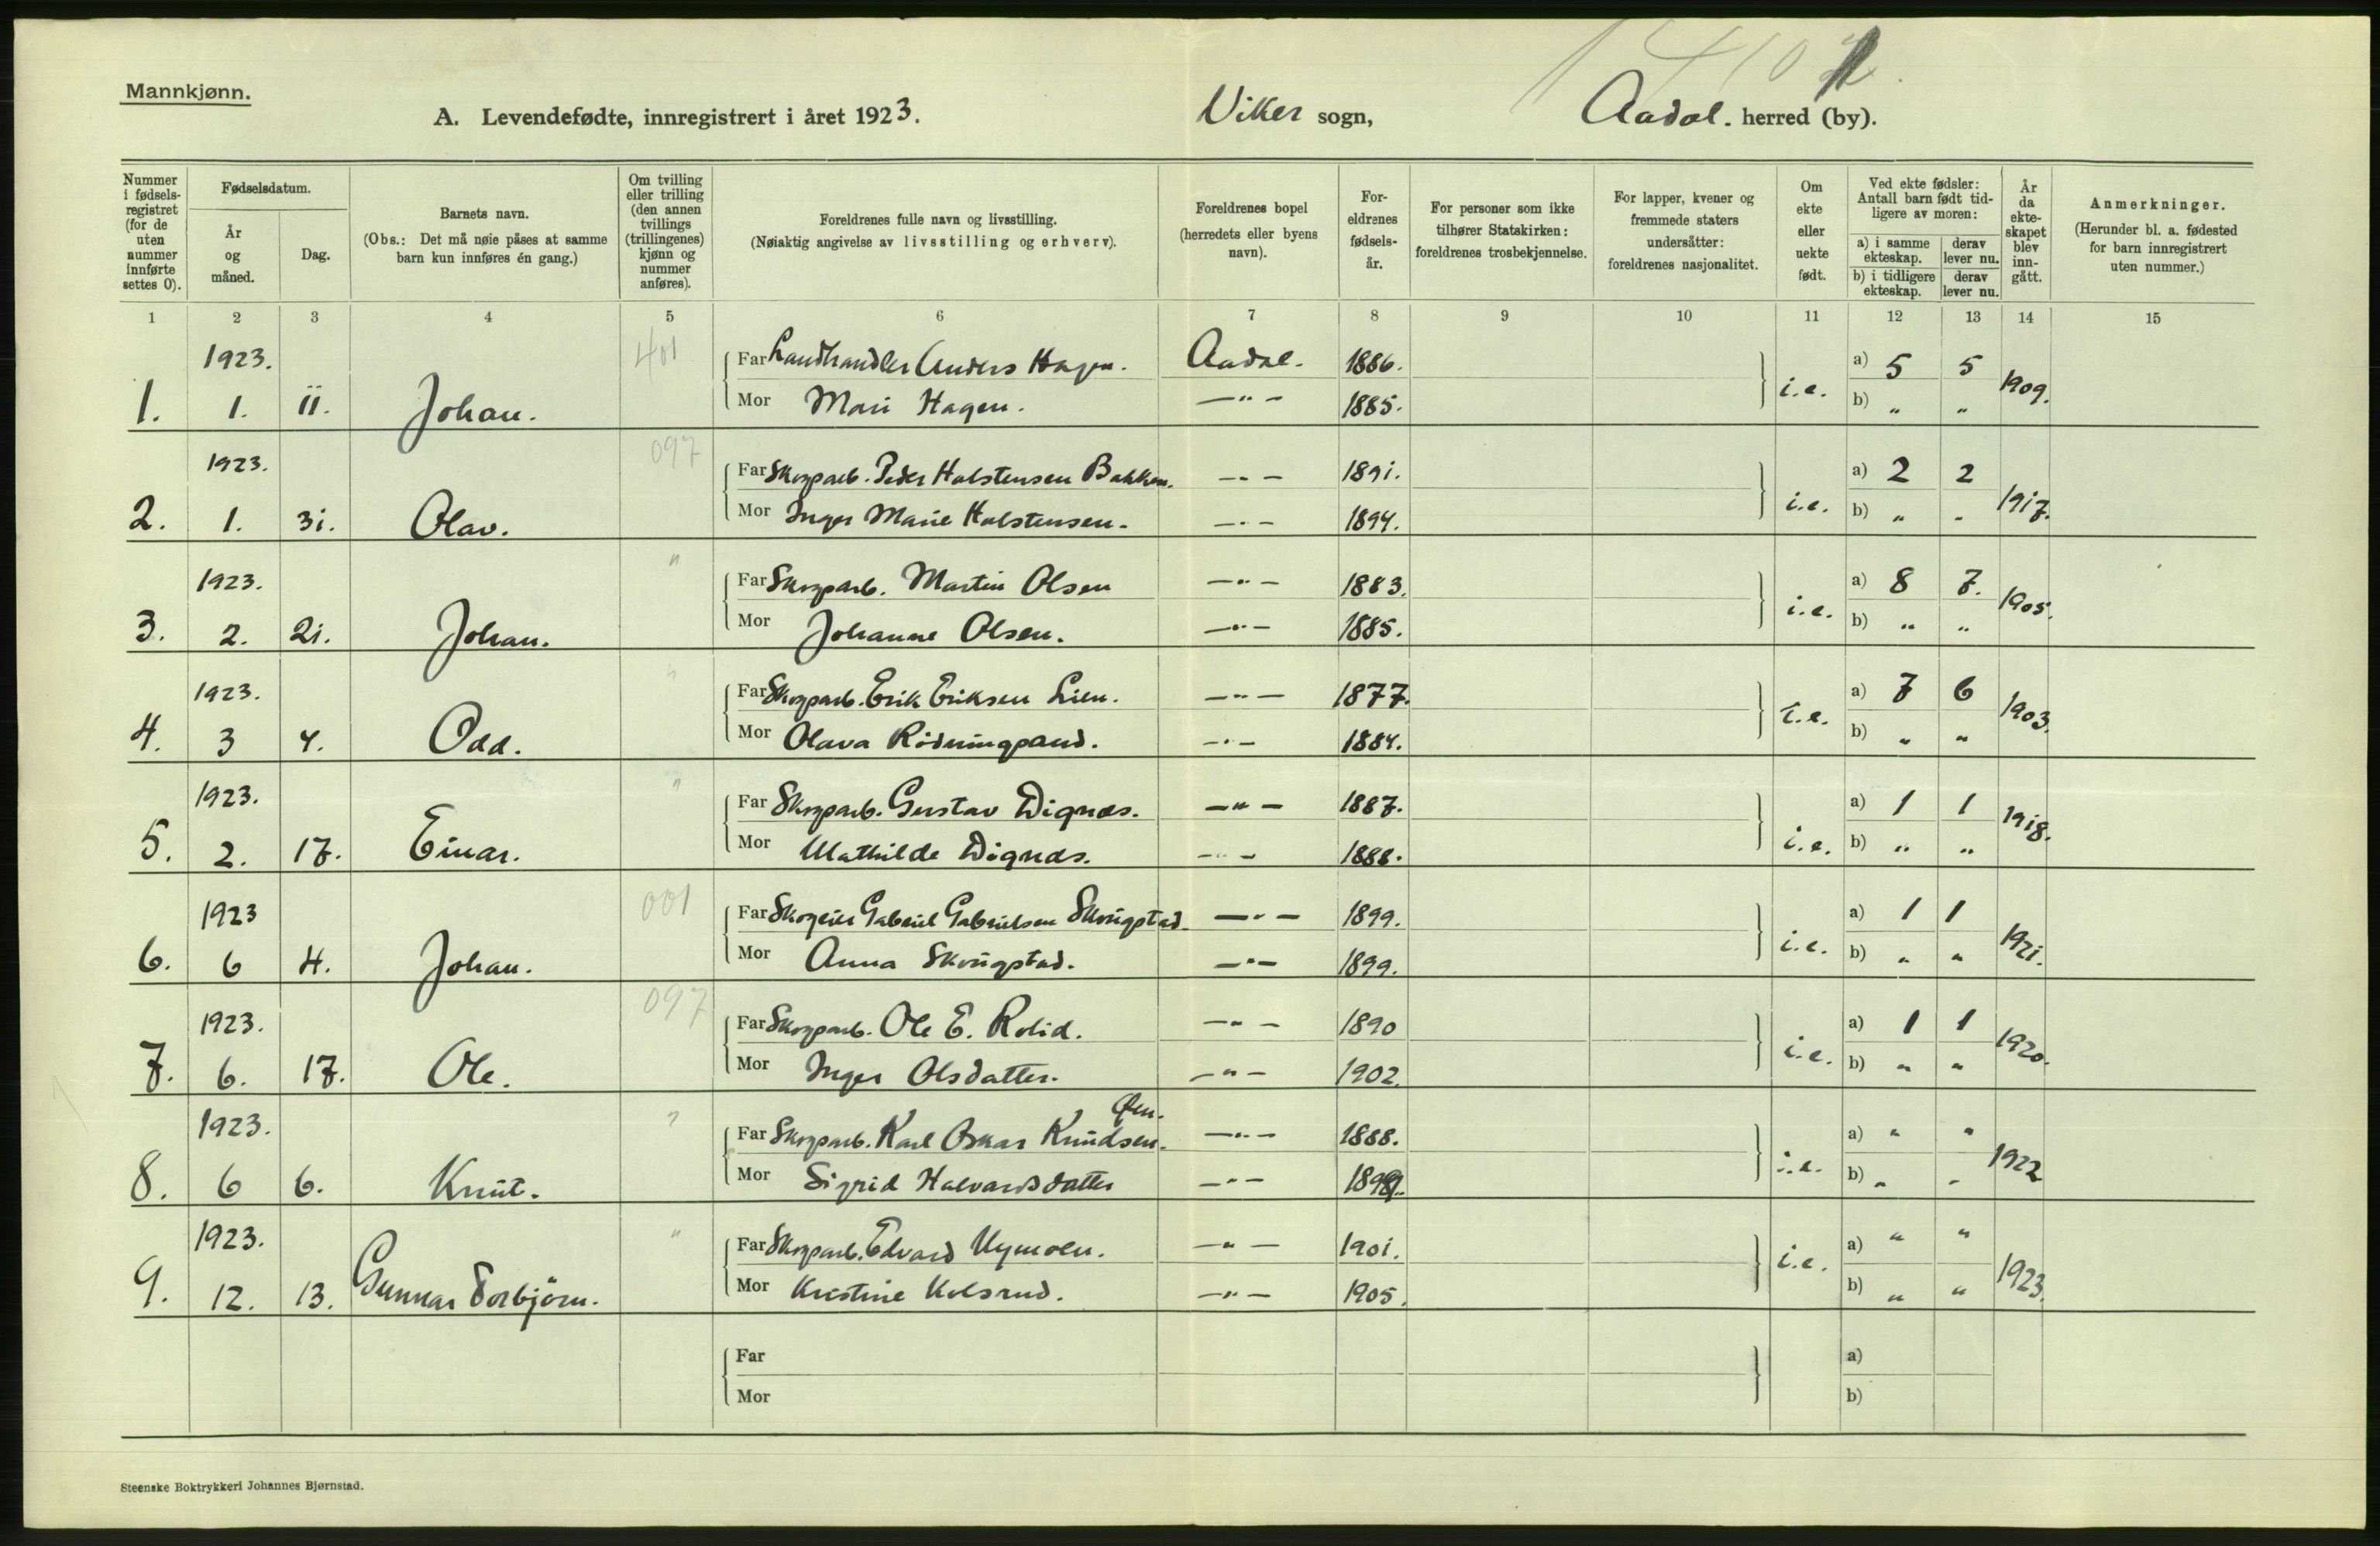 Mannkjønn.
A. Levendefødte, innregistrert i året 1923.
Viker sogn,
Aadal. herred (by).
Nummer i fødselsregistret (for de uten nummer innførte settes 0).
Fødselsdatum.
År og måned.
Dag.
Barnets navn.
(Obs.: Det må nøie påses at samme barn kun innføres én gang.)
Om tvilling eller trilling (den annen tvillings (trillingenes) kjønn og nummer anføres).
Foreldrenes fulle navn og livsstilling.
(Nøiaktig angivelse av livsstilling og erhverv).
Foreldrenes bopel (herredets eller byens navn).
Foreldrenes fødselsår.
For personer som ikke tilhører Statskirken: foreldrenes trosbekjennelse.
For lapper, kvener og fremmede staters undersåtter: foreldrenes nasjonalitet.
Om ekte eller uekte født.
Ved ekte fødsler: Antall barn født tidligere av moren:
a) i samme ekteskap.
derav lever nu.
b) i tidligere ekteskap.
derav lever nu.
År da ekteskapet blev inngått.
Anmerkninger.
(Herunder bl. a. fødested for barn innregistrert uten nummer.)
1 2 3 4 5 6 7 8 9 10 11 12 13 14 15
1923. 401 Far Landhandler Anders Hagen. Aadal. 1886. a) 5 5
1. 1. 11. Johan. Mor Mari Hagen. —"— 1885. i.e. b) " " 1909.
1923. 097 Far Skogarb. Peder Halstensen Bakken. —"— 1891. a) 2 2
2. 1. 31. Olav. Mor Inger Marie Halstensen. —"— 1894. i.e. b) " " 1917.
1923. " Far Skogarb. Martin Olsen —"— 1883. a) 8 7.
3. 2. 21. Johan. Mor Johanne Olsen. —"— 1885. i.e. b) " " 1905.
1923. " Far Skogarb. Erik Eriksen Lien. —"— 1877. a) 7 6
4. 3 4. Odd. Mor Olava —"— 1884. i.e. b) " " 1903.
1923. " Far Skogarb. Gustav Dignæs. —"— 1887. a) 1 1
5. 2. 17. Einar. Mor Mathilde Dignæs. —"— 1888. i.e. b) " " 1918.
1923 001 Far Skogeier Gabriel Gabrielsen Skringstad. —"— 1899. a) 1 1
6. 6 4. Johan. Mor Anna Skringstad. —"— 1899. i.e. b) " " 1921.
1923. 097 Far Skogarb. Ole E. Rolid. —"— 1890 a) 1 1
7. 6. 17. Ole. Mor Inger Olsdatter. —"— 1902. i.e. b) " " 1920.
Øen.
1923. " Far Skogarb. Karl Oskar Knudsen. —"— 1888. a) " "
8. 6 6. Knut. Mor Sigrid Halvardsdatter —"— i.e. b) " " 1922
1923. " Far Skogarb. Edvard Nymoen. —"— 1901. a) " "
9. 12. 13. Gunnar Torbjörn. Mor Kristine Kolsrud. —"— 1905. i.e. b) " " 1923.
Far a)
Mor b)
Steenske Boktrykkeri Johannes Bjørnstad.